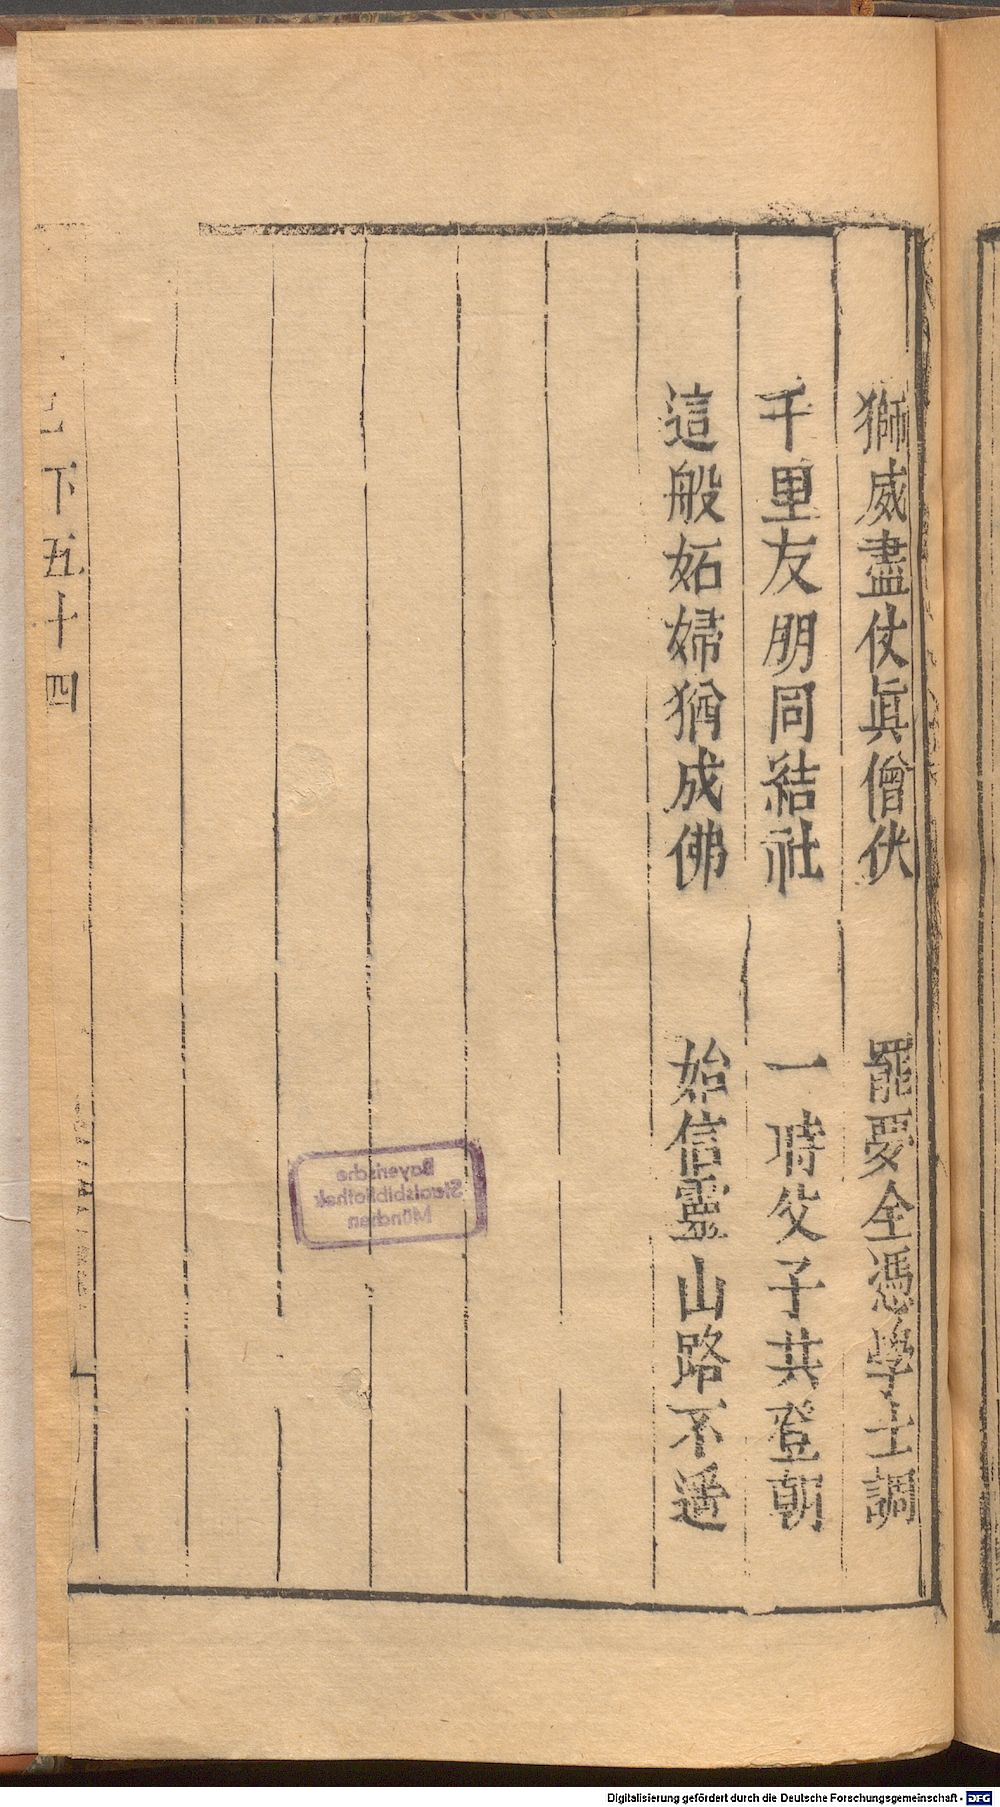 獅威盡仗眞僧伏　罷要全憑學士調
千里友朋同結社　一時父子共登朝
這般妬婦猶成佛　始信靈山路不遥
下五十四
Bayerische
Staatsbibliothek
München
Digitalisierung gefördert durch die Deutsche Forschungsgemeinschaft - DFG